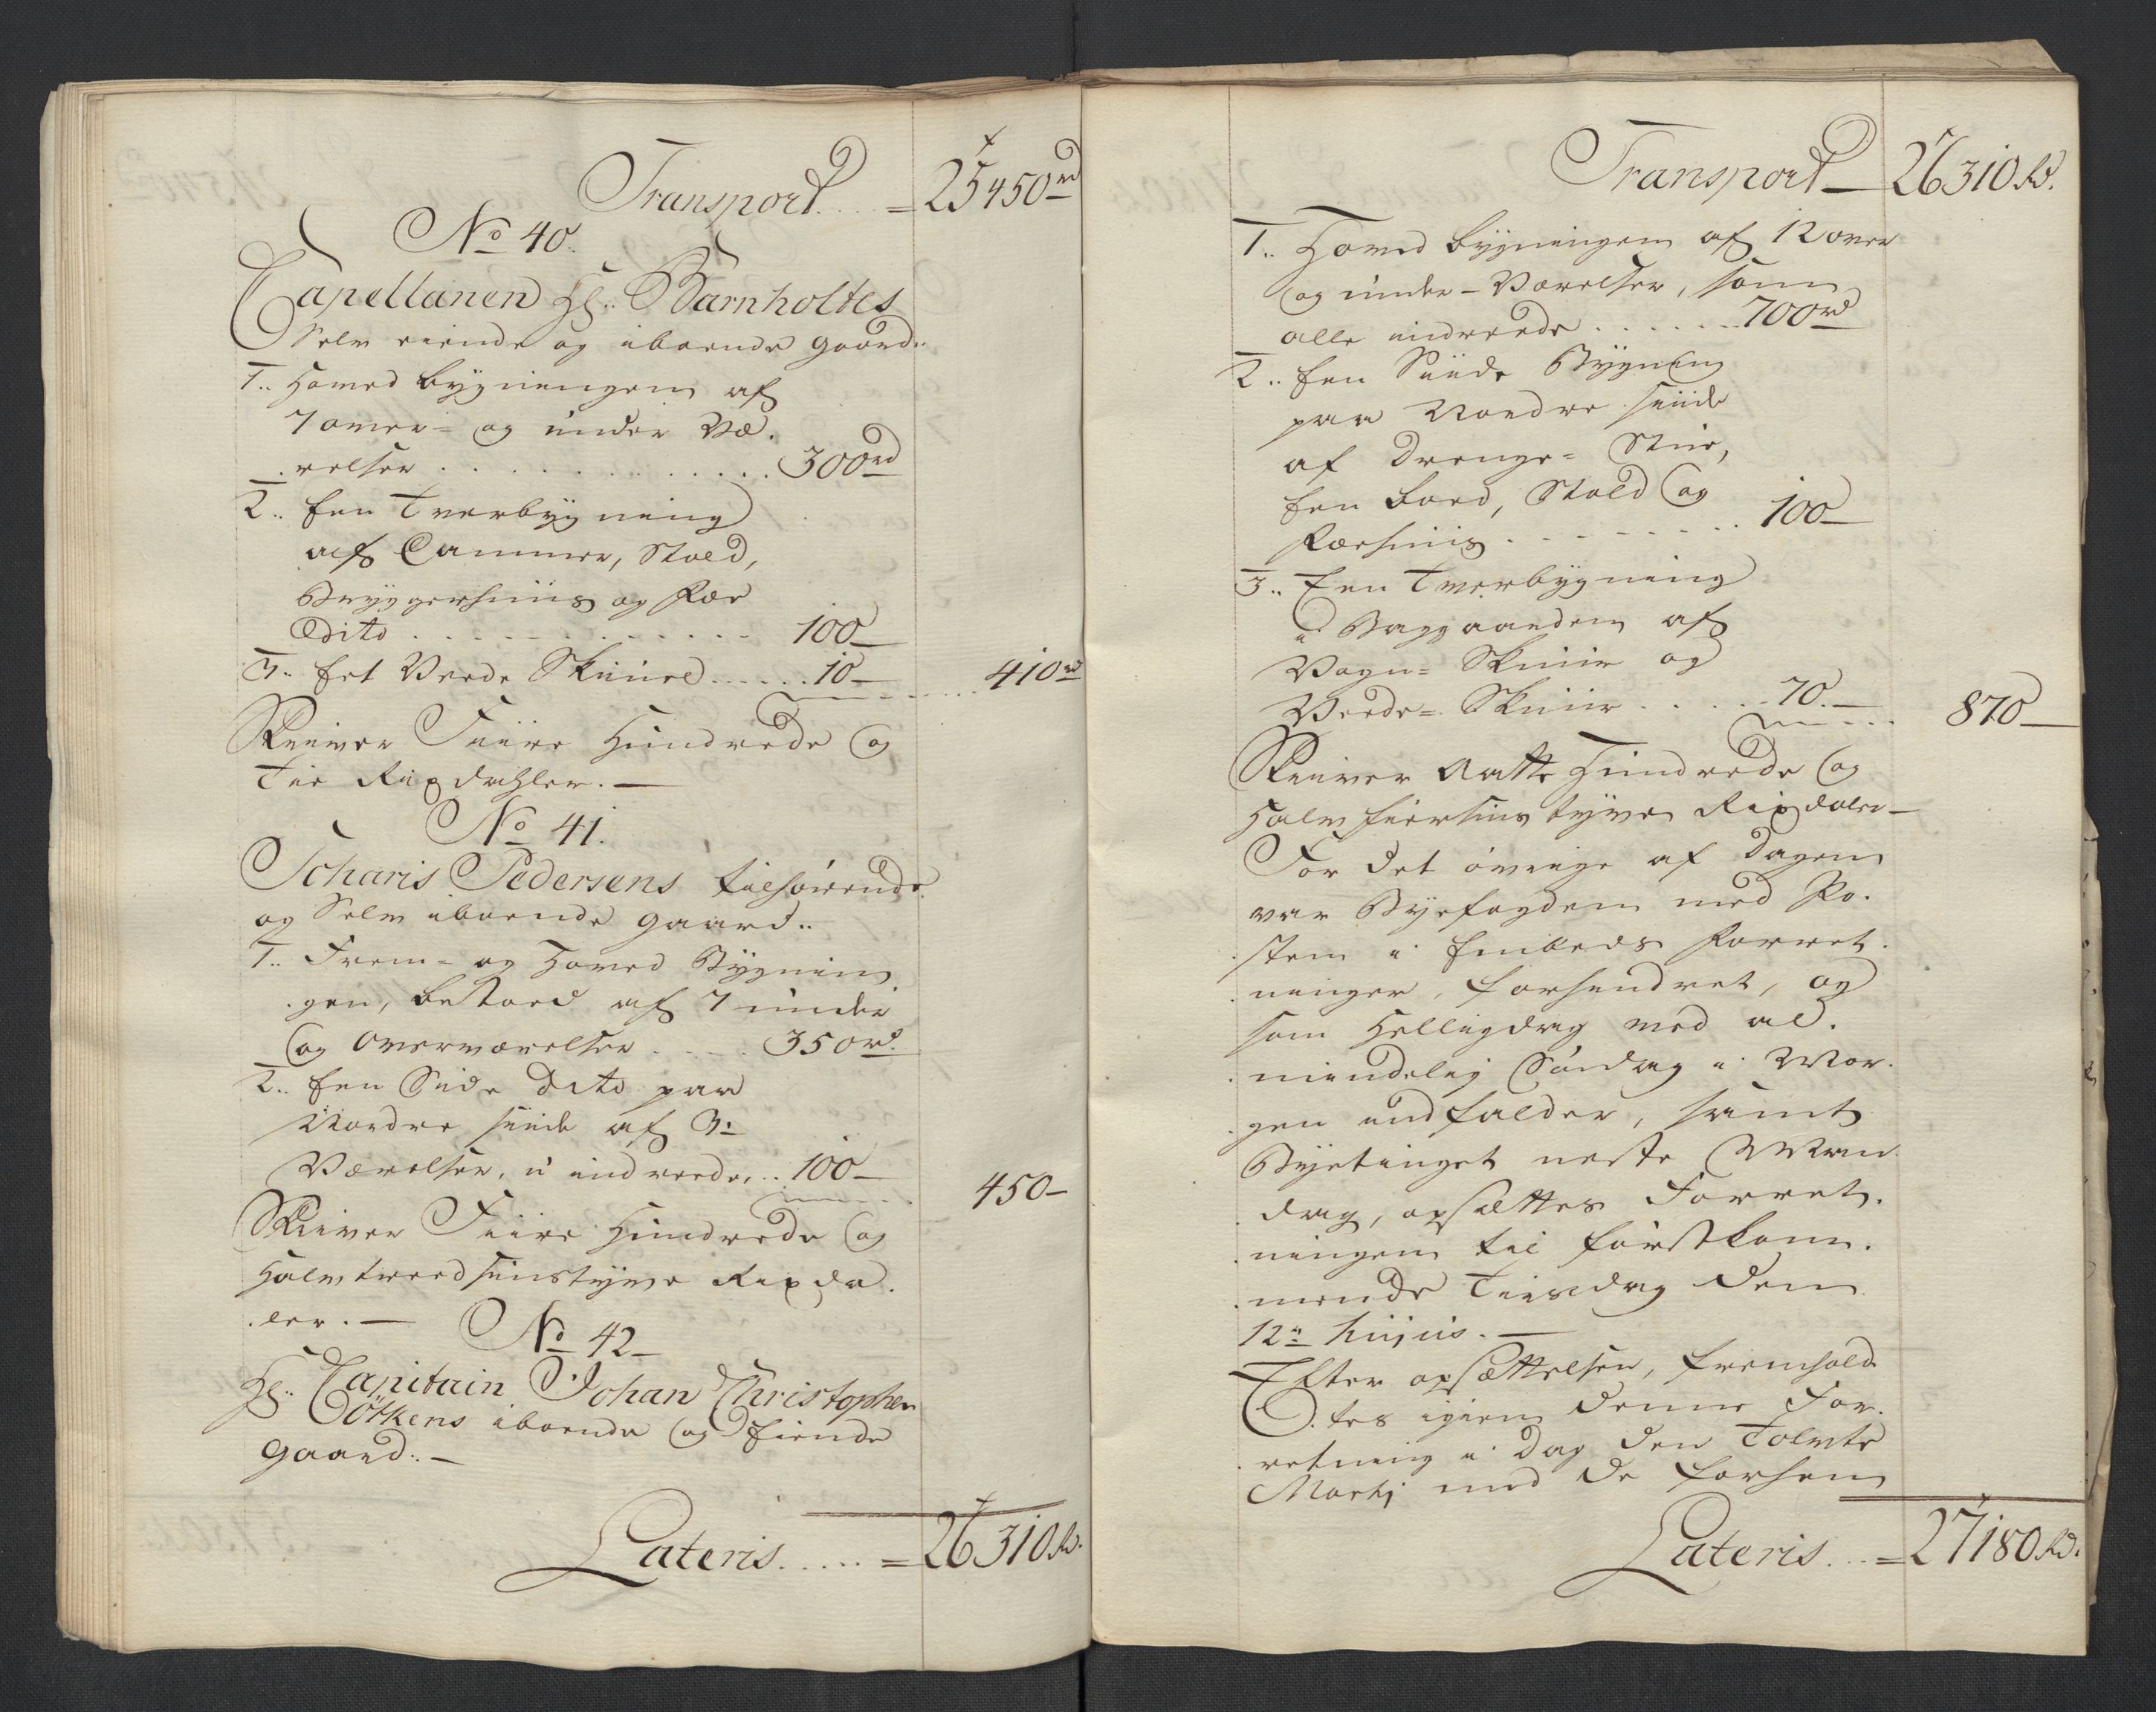 Transport.... = 25450 rd
No 40.
Capellanen Hr. Barnholtes
Selv eiende og iboende gaard..
1.. Hoved bygningen af
7 over- og under Væ-
relser . . . . . . 300 rd
2.. Een Tverbygning
af Cammer, Stald,
Bryggerhuus og Fæe
Dito . . . . . . 100 —
3.. Eet Veede Skuur . . . . . 10 — . . . . 410 rd
Skriver Fiire Hundrede og
Tie Rixdahler. —
No 41.
Zcharis Pedersens tilhörende
og Selv iboende gaard..
1.. Frem- og Hoved Bygnin
gen, bestaaed af 7 under
og Overværelser . . . . 350 rd.
2.. Een Side Dito paa
Nordre siide af 3:
Værelser, u indreede. . . 100 — 450 —
Skriver Fiire Hundrede og
Halvtreedsinstyve Rixda-
ler. —
No 42 —
Hr. Capitain Johan Christopher
Cötkens iboende og Eiende
gaard. —
Lateris . . . . . = 26310 Rd.
Transport — 26310 Rd.
1.. Hoved bygningen af 12 over
og under-Værelser, som
alle indreede . . . . . . 700 rd
2.. Een Siide Bygning
paa Nordre siide
af Drenge- Stue,
Een boed, Stald og
Fæehuus . . . . . . 100 —
3.. Een Tverbygning
i Baggaarden af
Vogn- Skuur og
Veede- Skuur . . . . . 70. — 870 —
Skriver Aatte Hundrede og
Halvfiersinstyve Rixdaler —
For det övrige af Dagen
var Byefogden med Po-
sten i Embeds Forret-
ninger, forhindret, og
som Helligdag med al-
mindelig Söndag i Mor-
gen indfalder, samt
Byetinget neste Man-
dag, opsættes Forret-
ningen til förstkom-
mende Tiisdag den
12te hujus. —
Efter opsættelsen, fremhold-
tes igien denne For-
retning i Dag den Tolvte
Martij med de forhen
Lateris . . . = 27180 Rd.